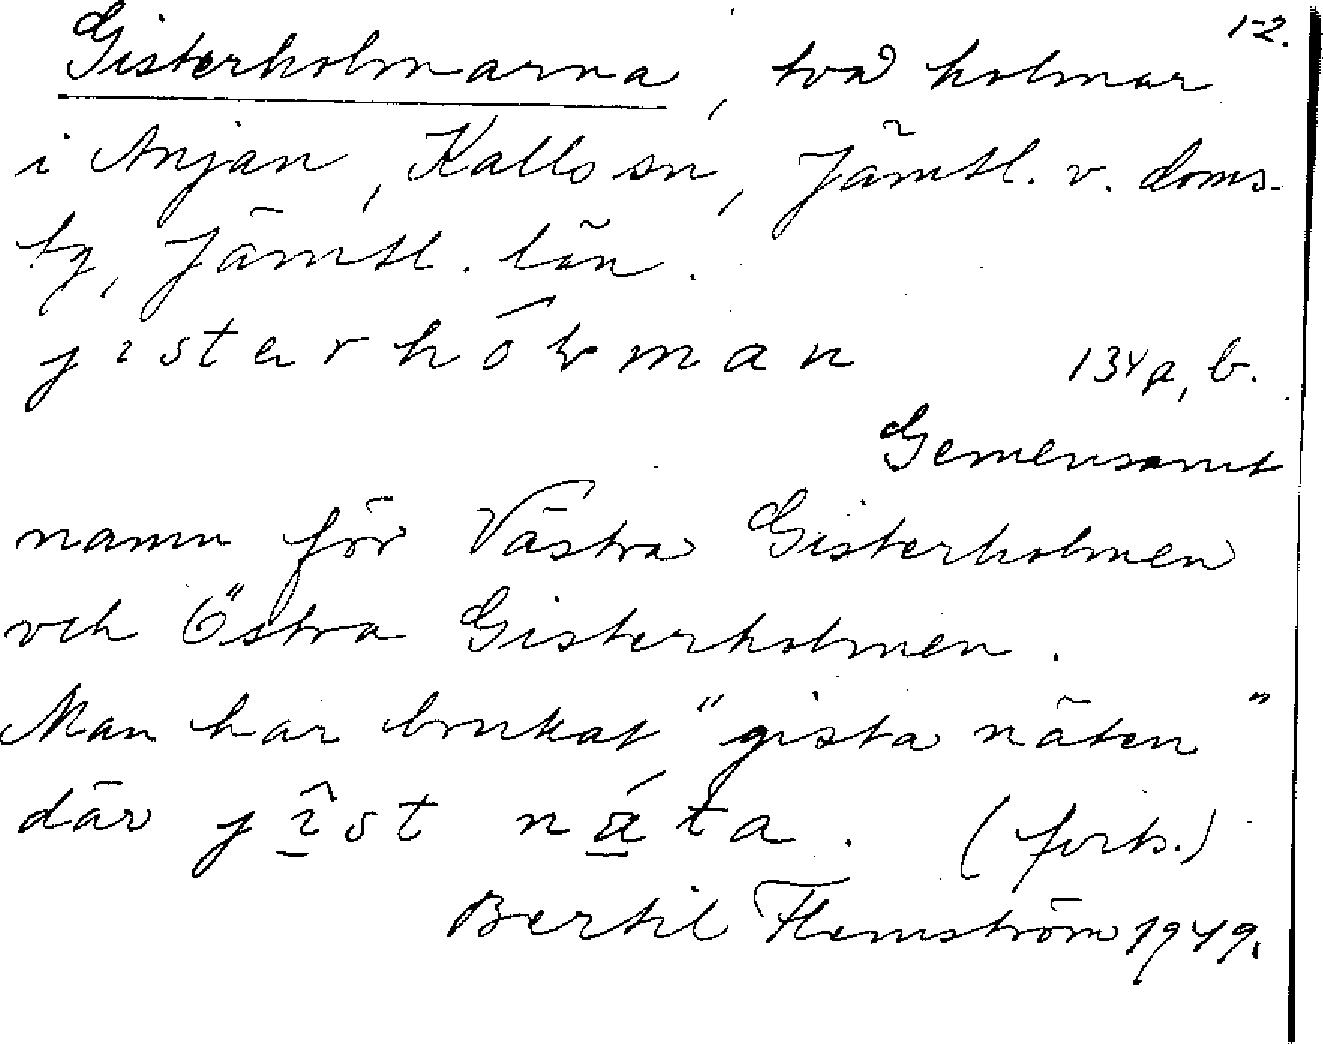 1-2.
Gisterholmarna, två holmar
i Anjan, Kalls sn, Jämtl. v. doms-
tg, Jämtl. län.
134 a, b.
Gemensamt
namn för Västra Gisterholmen
och Östra Gisterholmen.
Man har brukat "gista näten"
där jîst náta. (forts.)
Bertil Flemström 1949.